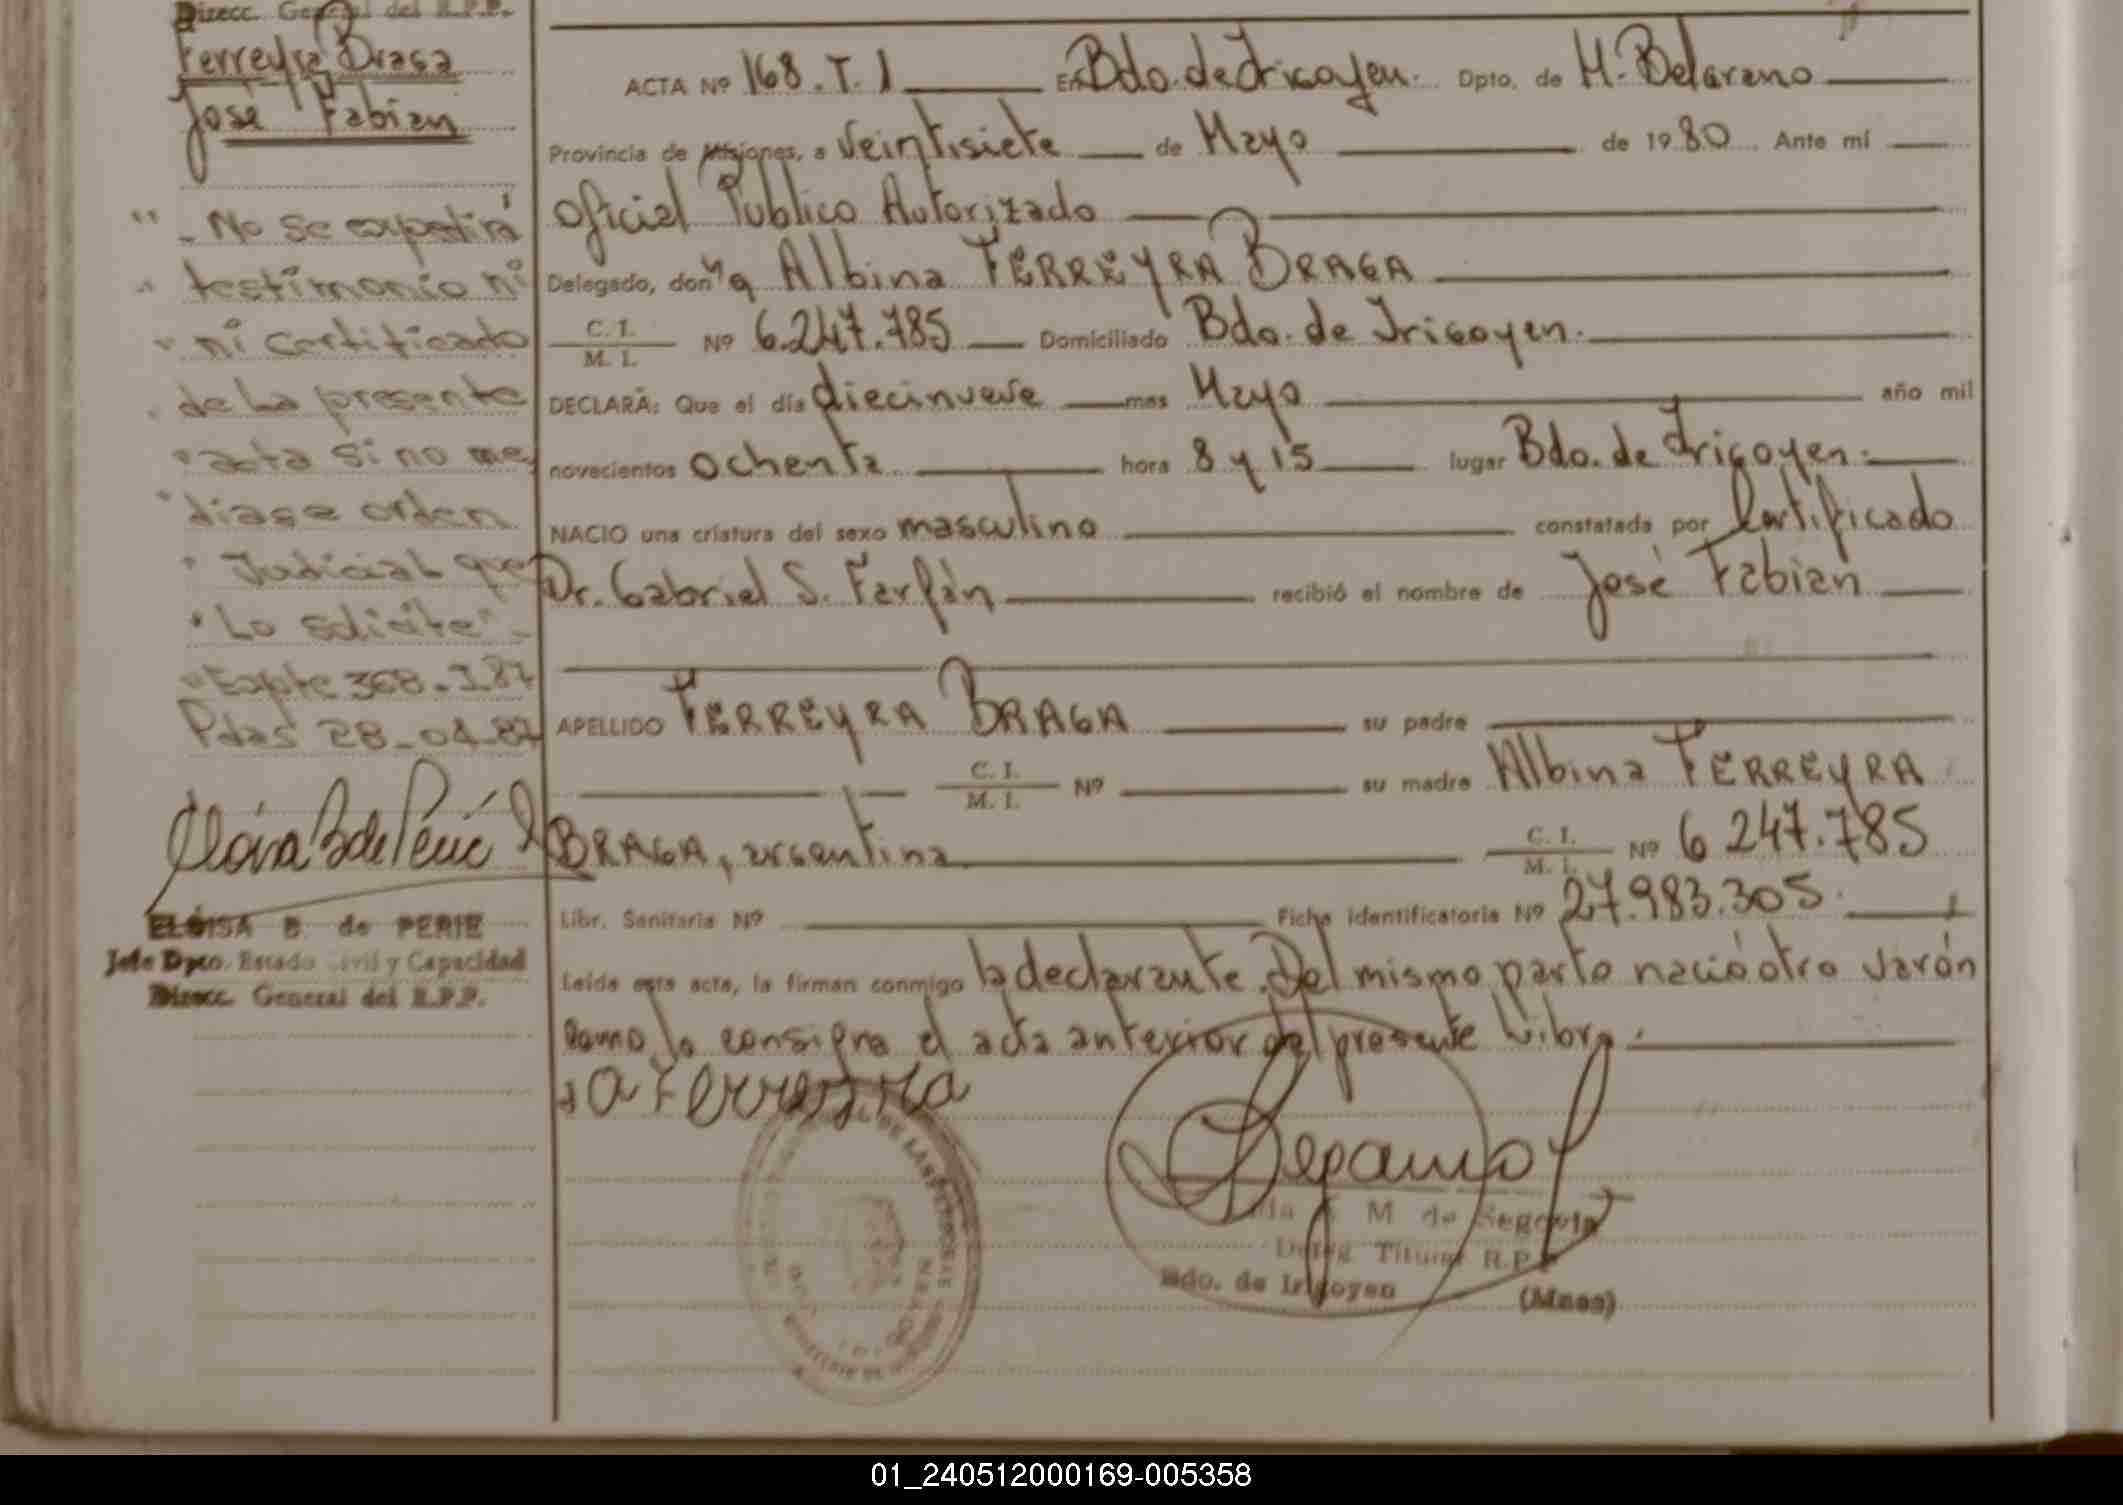 Direcc. General del R.P.P.
Ferreyra Braga
José Fabian
"- No se expedirá
" testimonio ni
" ni certificado
" de La presente
" acta si no me,
" diase orden
" Judicial que
" Lo solicite"-
"Expte 368-I-87
Pdas 28-04-87
ELOISA B. de PERIE
Jefe Dpto. Estado Civil y Capacidad
Direcc. General del R.P.P.
ACTA Nº 168.T.1 En Bdo. de Irigoyen. Dpto. de M. Belgrano
Provincia de Misiones, a veintisiete de Mayo de 1980 Ante mí
Oficial Público Autorizado
Delegado, donña Albina FERREYRA BRAGA
C. I. / M. I. Nº 6.247.785 Domiciliado Bdo. de Irigoyen.
DECLARA: Que el día diecinueve mes Mayo año mil
novecientos ochenta hora 8 y 15 lugar Bdo. de Irigoyen.
NACIO una criatura del sexo masculino constatada por Certificado
Dr. Gabriel S. Farfán recibió el nombre de José Fabián
APELLIDO FERREYRA BRAGA su padre
C. I. / M. I. Nº su madre Albina FERREYRA
BRAGA, argentina C. I. / M. I. Nº 6.247.785
Libr. Sanitaria Nº Ficha identificatoria Nº 27.983.305.
Leída esta acta, la firman conmigo la declarante. Del mismo parto nació otro varón
como lo consigna el acta anterior del presente Libro.
a Ferreyra
M de Segovia
Deleg. Titular R.P.P.
Bdo. de Irigoyen (Mnes)
01_240512000169-005358